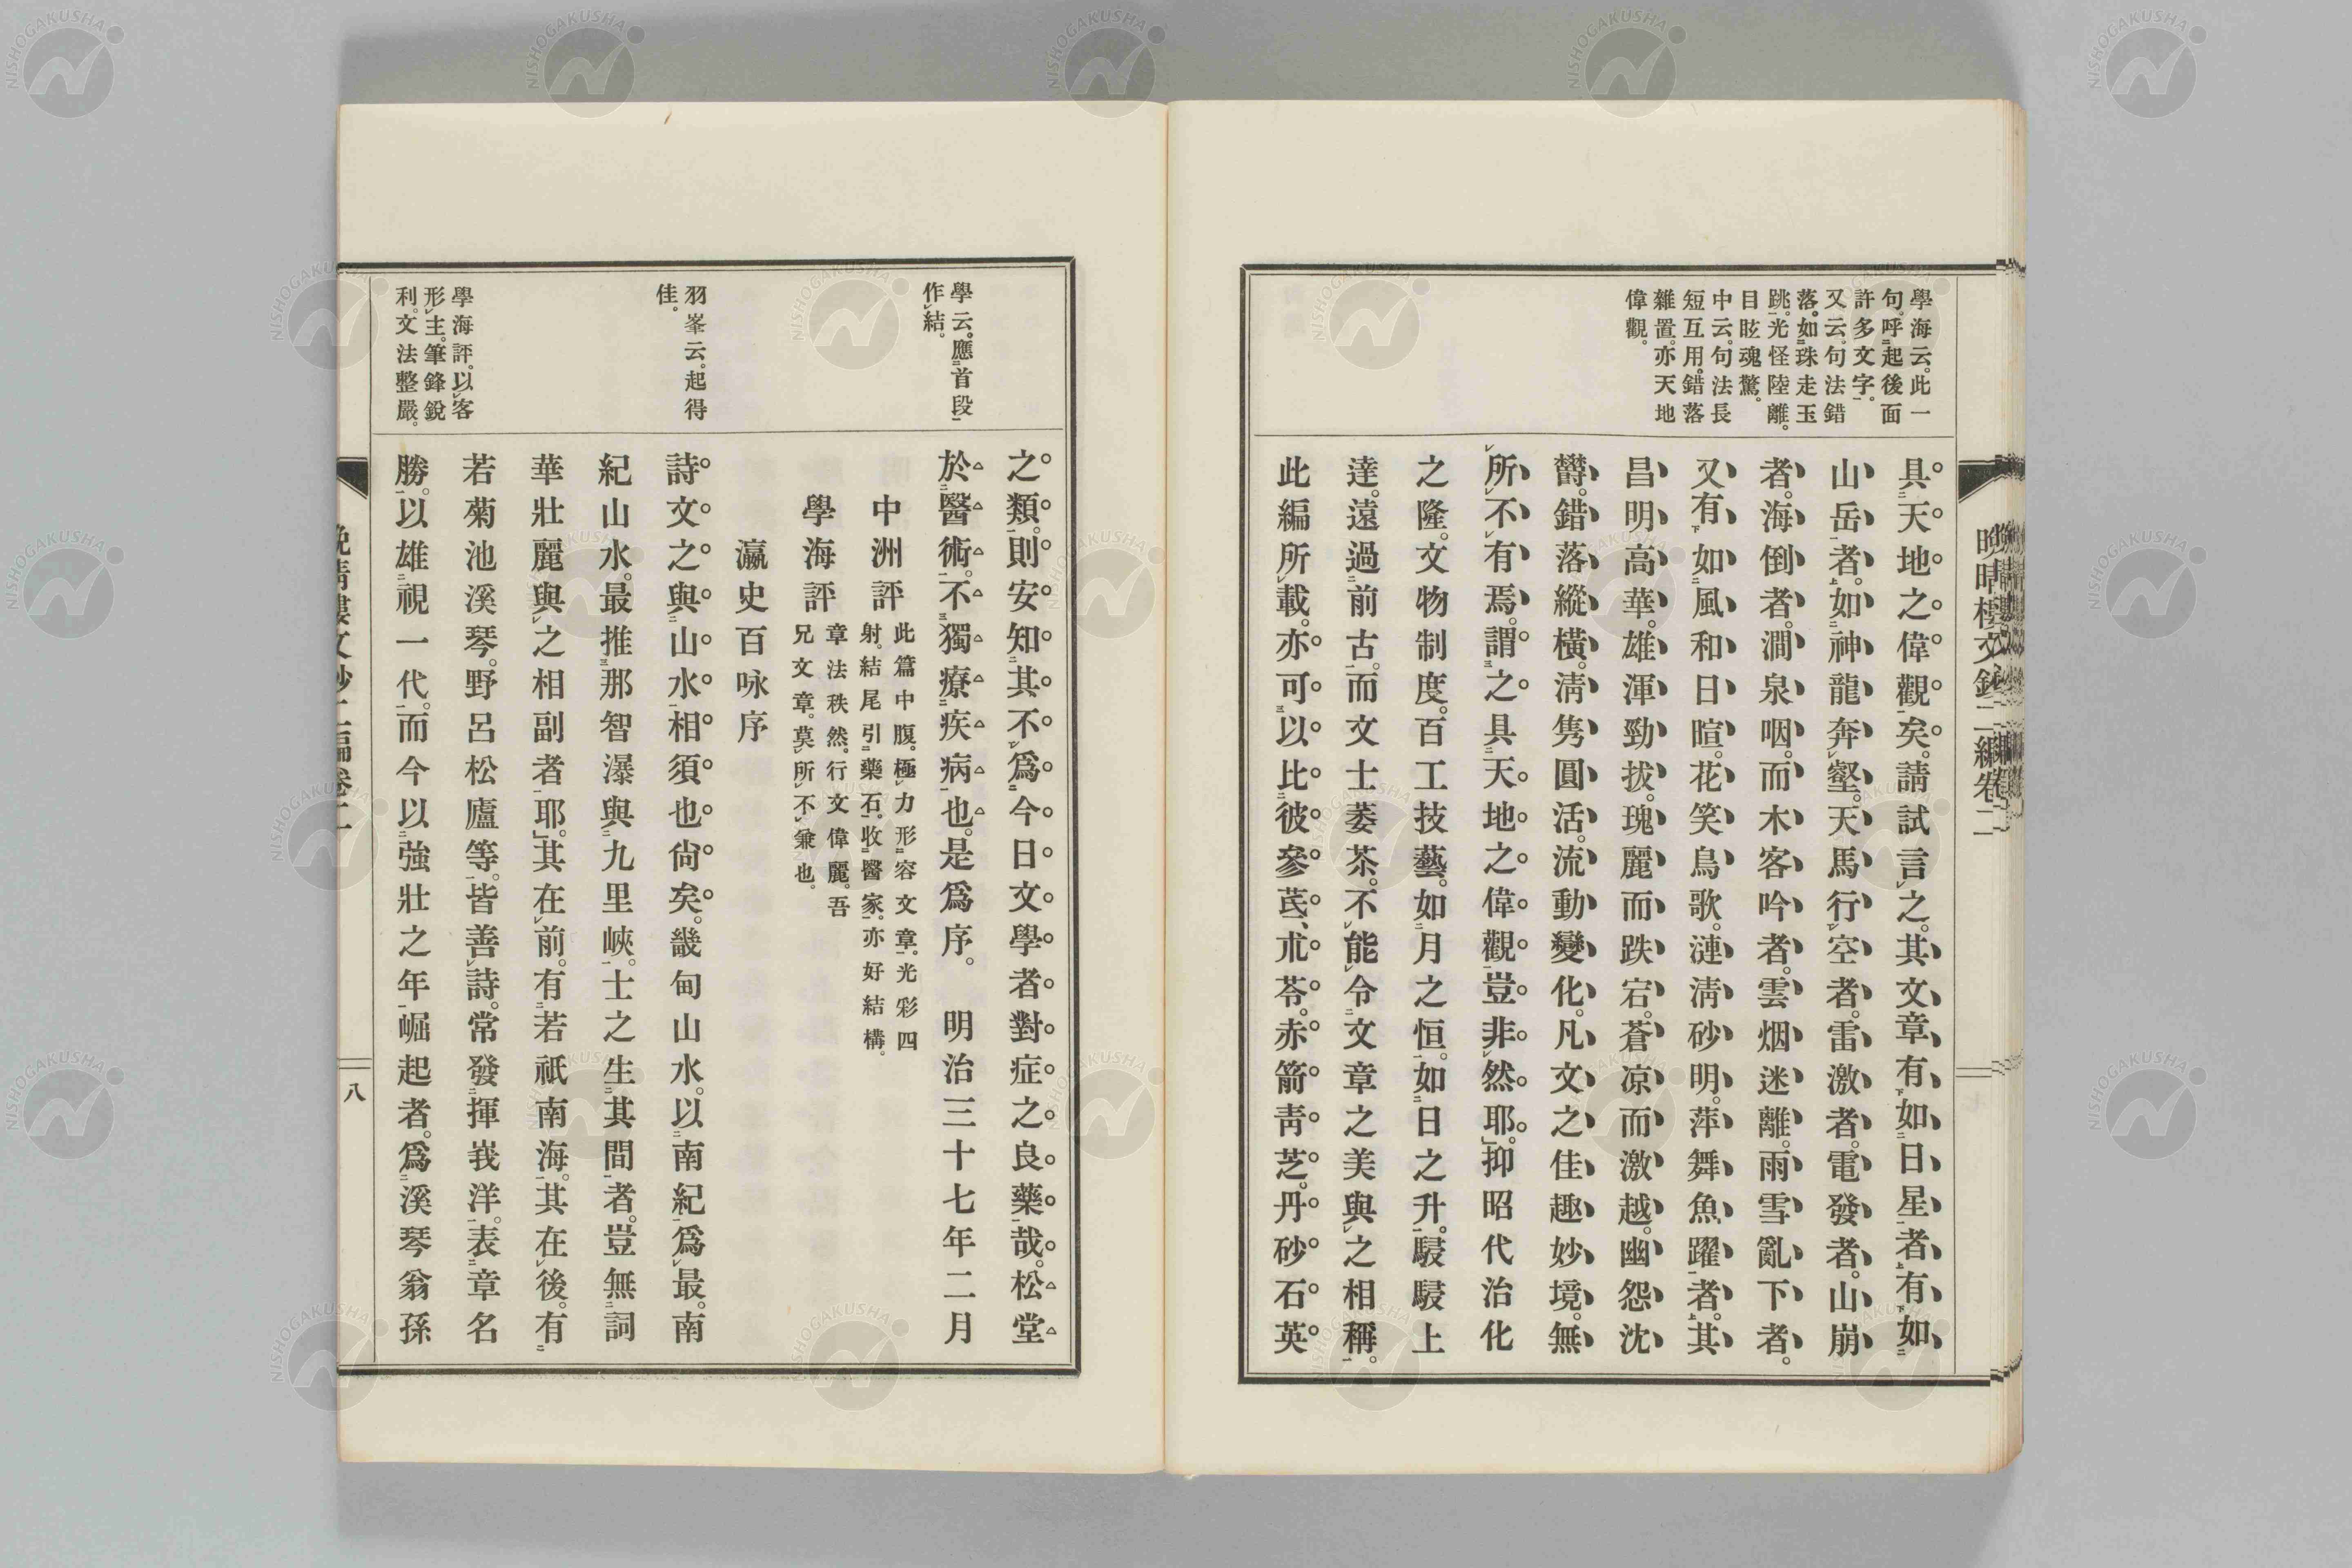 晩晴樓文鈔二編卷二
學海云。此一
句。呼起後面
許多文字。
又云。句法錯
落。如珠走玉
跳。光怪陸離。
目眩魂驚。
中云。句法長
短互用。錯落
雜置。亦天地
偉觀。
具天地之偉觀矣。請試言之。其文章有如日星者。有如
山岳者。如神龍奔壑。天馬行空者。雷激者。電發者。山崩
者。海倒者。澗泉咽。而木客吟者。雲烟迷離。雨雪亂下者。
又有如風和日暄。花笑鳥歌。漣淸砂明。萍舞魚躍者。其
昌明高華。雄渾勁拔。瑰麗而跌宕。蒼凉而激越。幽怨沈
欝。錯落縱橫。淸雋圓活。流動變化。凡文之佳趣妙境。無
所不有焉。謂之具天地之偉觀。豈非然耶。抑昭代治化
之隆。文物制度。百工技藝。如月之恒。如日之升。駸駸上
達。遠過前古。而文士萎茶。不能令文章之美與之相稱。
此編所載。亦可以比彼參芪、朮苓。赤箭靑芝。丹砂石英
學云。應首段
作結。
羽峯云。起得
佳。
學海評。以客
形主。筆鋒銳
利。文法整嚴。
之類。則安知其不爲今日文學者對症之良藥哉。松堂
於醫術。不獨療疾病也。是爲序。 明治三十七年二月
中洲評 此篇中腹。極力形容文章。光彩四
射。結尾引藥石。收醫家。亦好結構。
學海評 章法秩然。行文偉麗。吾
兄文章。莫所不兼也。
瀛史百咏序
詩文之與山水相須也尙矣。畿甸山水。以南紀爲最。南
紀山水。最推那智瀑與九里峽。士之生其間者。豈無詞
華壯麗與之相副者耶。其在前。有若祇南海。其在後。有
若菊池溪琴。野呂松廬等。皆善詩。常發揮峩洋。表章名
勝。以雄視一代。而今以強壯之年崛起者。爲溪琴翁孫
晩晴樓文鈔二編卷二
八